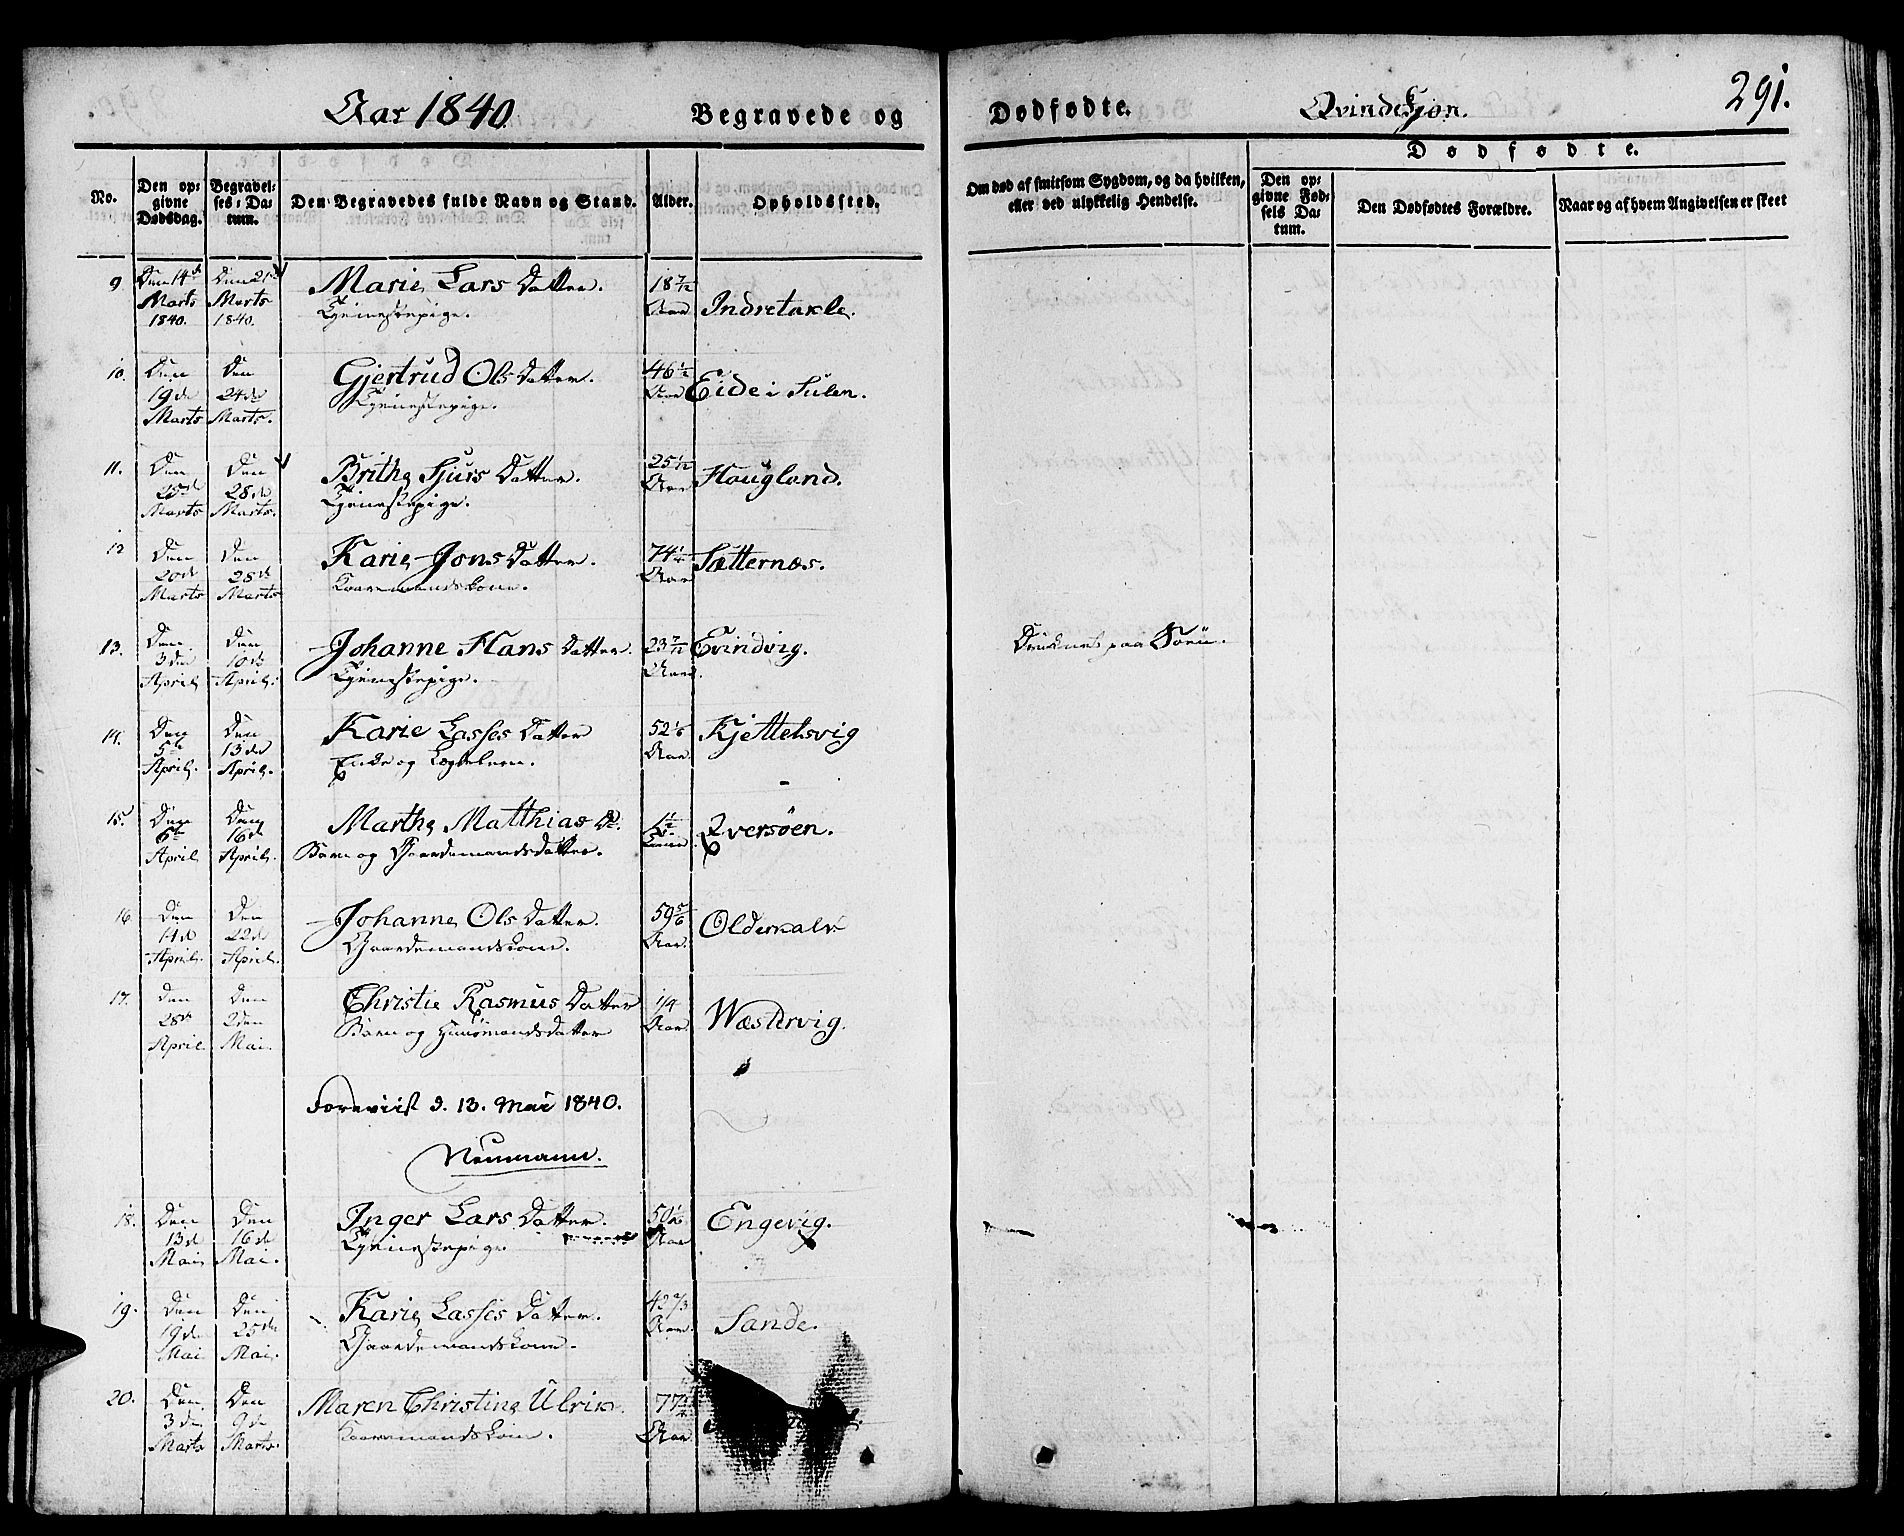 Aar 1840. Begravede og Dødfødte. Qvindekjøn. 291.
No.
Den op-
givne
Dødsdag.
Begravel-
ses-Da-
tum.
Den Begravedes fulde Navn og Stand.
Alder.
Opholdssted.
Om død af smitsom Sygdom, og da hvilken,
eller ved ulykkelig Hendelse.
Dødfødte.
Den op-
givne Fød-
sels Da-
tum.
Den Dødfødtes Forældre.
Naar og af hvem Angivelsen er skeet
9 Den 14de Den 21de Marie Lars Datter. 18 7/12
Marts Marts Tjenestepige. Aar Indretakle.
1840. 1840.
10. Den Den Gjertrud Ols Datter. 46 1/2
19de 24de Tjenestepige. Aar Eide i Sulen.
Marts Marts.
11. Den Den Brithe Sjurs Datter. 25 1/12
25de 28de Tjenestepige. Aar Haugland.
Marts Marts.
12 Den Den Karie Jons Datter. 74 1/4
20de 28de Kaaremandskone. Aar Sætternæs.
Marts Marts
13. Den Den Johanne Hans Datter. 23 7/12 Evindvig. Druknet paa Søen.
3den 10de Tjenestepige. Aar.
April April.
14. Den Den Karie Lasses Datter 52 1/6 Kjettelsvig
5te 13de Enke og Lægdslem. Aar
April. April.
15. Den Den Marthe Matthias D. 1 1/2
6te 16de Barn og Gaardemandsdatter. Iversøen.
April April.
16. Den Den Johanne Ols Datter. 59 5/6
14de 22de Gaardemandskone. Aar. Olderkalv
April. April.
17. Den Den Christie Rasmus Datter 1/4
28de 2den Barn og Huusmandsdatter Aar. Wæstervig.
April Mai.
Foreviist d. 13. Mai 1840.
Neumann.
18. Den Den Inger Lars Datter. 50 Engevig.
13de 16de Tjenestepige Aar
Mai Mai.
19. Den Den Karie Lasses Datter. 42 2/3
19de 25de Gaardemandskone. Aar. Sande.
Mai Mai.
20. Den Den Maren Christine Ulrik. 77
3de 9de Kaaremandskone. Aar
Marts Marts.